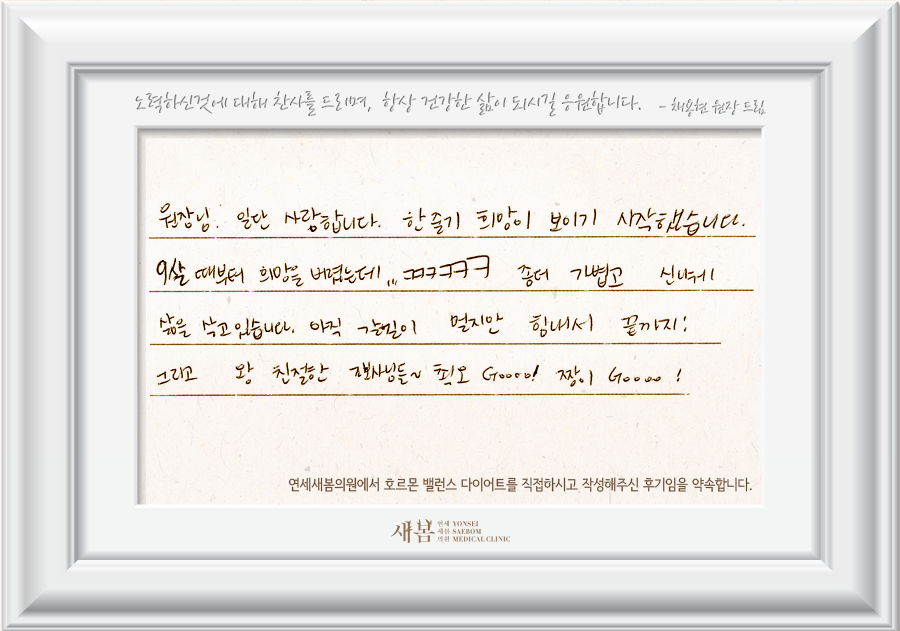 노력하신것에 대해 찬사를 드리며, 항상 건강한 삶이 되시길 응원합니다. - 채용현 원장 드림
원장님. 일단 사랑합니다. 한줄기 희망이 보이기 시작했습니다.
9살 때부터 희망을 버렸는데,,, ㅋㅋㅋㅋㅋ 좀더 가볍고 신나게
삶을 살고있습니다. 아직 갈길이 멀지만 힘내서 끝까지!
그리고 왕 친절한 간호사님들~ 최고 Goooo! 짱이 Goooo!
연세새봄의원에서 호르몬 밸런스 다이어트를 직접하시고 작성해주신 후기임을 약속합니다.
새봄 연세 YONSEI
새봄 SAEBOM
의원 MEDICAL CLINIC